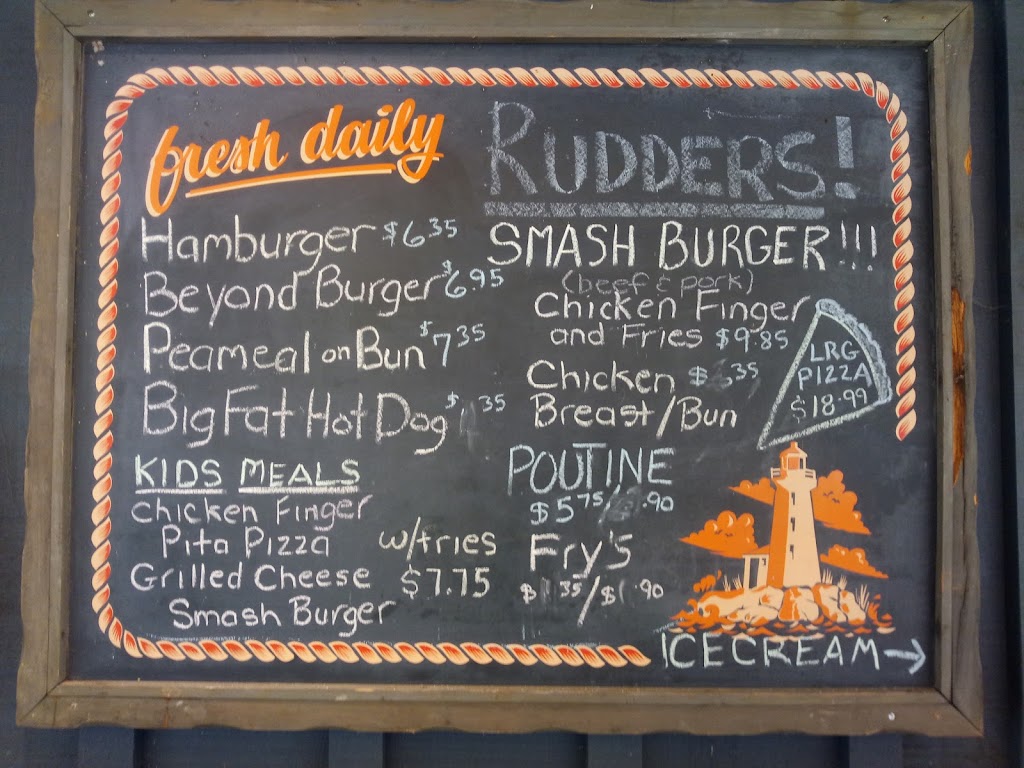 fresh daily
RUDDERS!
Hamburger $6.35
Beyond Burger $6.95
Peameal on Bun $7.35
Big Fat Hot Dog
KIDS MEALS
Chicken Finger
Pita Pizza
Grilled Cheese
Smash Burger
w/fries
$7.75
SMASH BURGER!!!
(beef & pork)
Chicken Finger
and Fries $9.85
Chicken
Breast/Bun
LRG
PIZZA
$18.99
POUTINE
$5.75/
Fry's
ICECREAM →